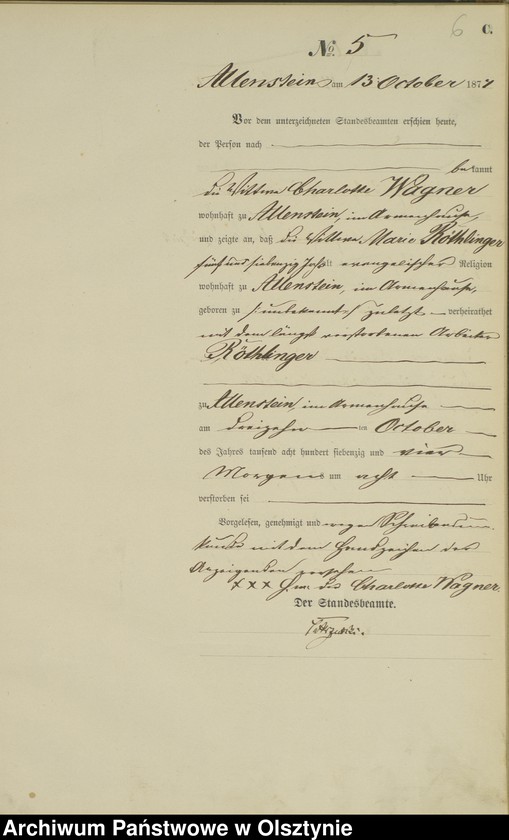 6 C.
No 5
Allenstein am 13 October 1874
Vor dem unterzeichneten Standesbeamten erschien heute,
der Person nach
bekannt
die Wittwe Charlotte Wagner
wohnhaft zu Allenstein, im Armenhause,
und zeigte an, daß die Wittwe Marie Röthlinger
fünf und siebenzig Jahr alt evangelischer Religion
wohnhaft zu Allenstein, im Armenhause,
geboren zu /: unbekannt :/ zuletzt verheirathet
mit dem längst verstorbenen Arbeiter
Röthlinger
zu Allenstein, im Armenhause
am dreizehn ten October
des Jahres tausend acht hundert siebenzig und vier
Morgens um acht Uhr
verstorben sei
Vorgelesen, genehmigt und wegen Schreibensun-
kunde mit dem Handzeichen der
Anzeigenden versehen
××× H.z. der Charlotte Wagner.
Der Standesbeamte.
Archiwum Państwowe w Olsztynie